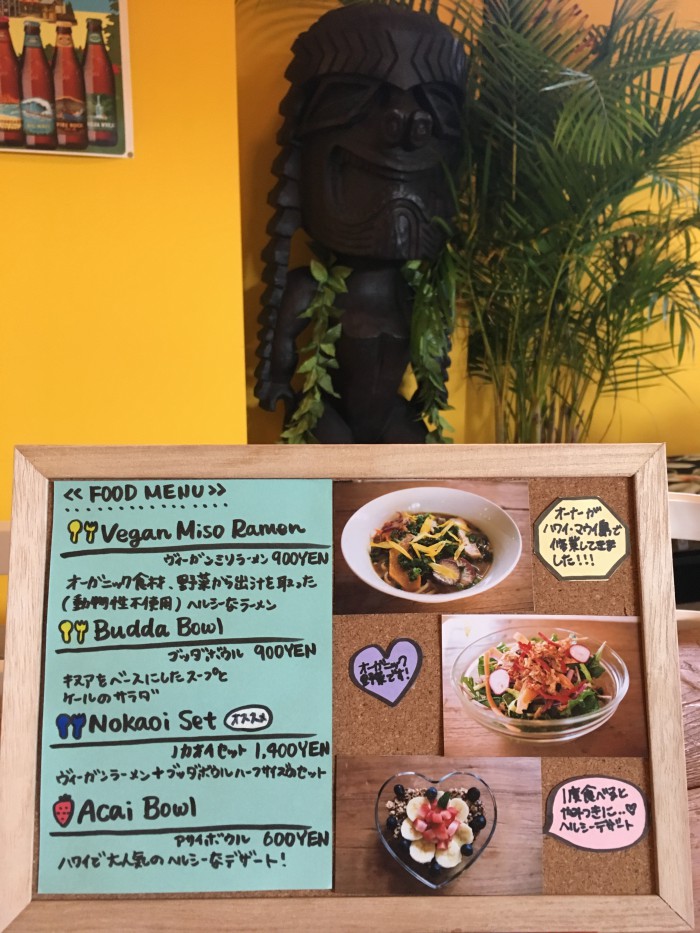 << FOOD MENU >>
Vegan Miso Ramen
ヴィーガンミソラーメン 900YEN
オーガニック食材、野菜から出汁を取った
(動物性不使用) ヘルシーなラーメン
Budda Bowl
ブッダボウル 900YEN
キヌアをベースにしたスープと
ケールのサラダ
Nokaoi Set オススメ
ノカオイセット 1,400YEN
ヴィーガンラーメン+ブッダボウルハーフサイズのセット
Acai Bowl
アサイボウル 600YEN
ハワイで大人気のヘルシーなデザート!
オーナーが
ハワイ・マウイ島で
修業してきま
した!!!
オーガニック
野菜です!
1度食べると
やみつきに…♡
ヘルシーデザート